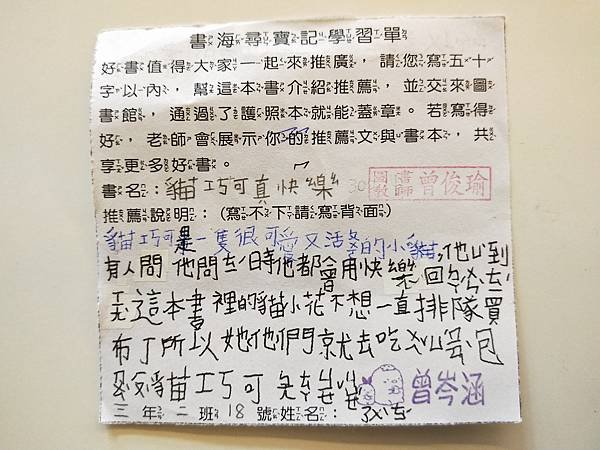 書海尋寶記學習單
好書值得大家一起來推廣，請您寫五十
字以內，幫這本書介紹推薦，並交來圖
書館，通過了護照本就能蓋章。若寫得
好，老師會展示你的推薦文與書本，共
享更多好書。
書名：貓巧可真快樂 30 圖教 曾俊瑜
推薦說明：（寫不下請寫背面）
貓巧可是一隻很可愛又活ㄆㄛ的小貓，他ㄩˋ到
有人問他問ㄊㄧˊ時他都會用快樂回ㄉㄚˊ
這本書裡的貓小花不想一直排隊買
布丁所以她他們就去吃
貓巧可 曾岑涵
三年二班18號姓名：